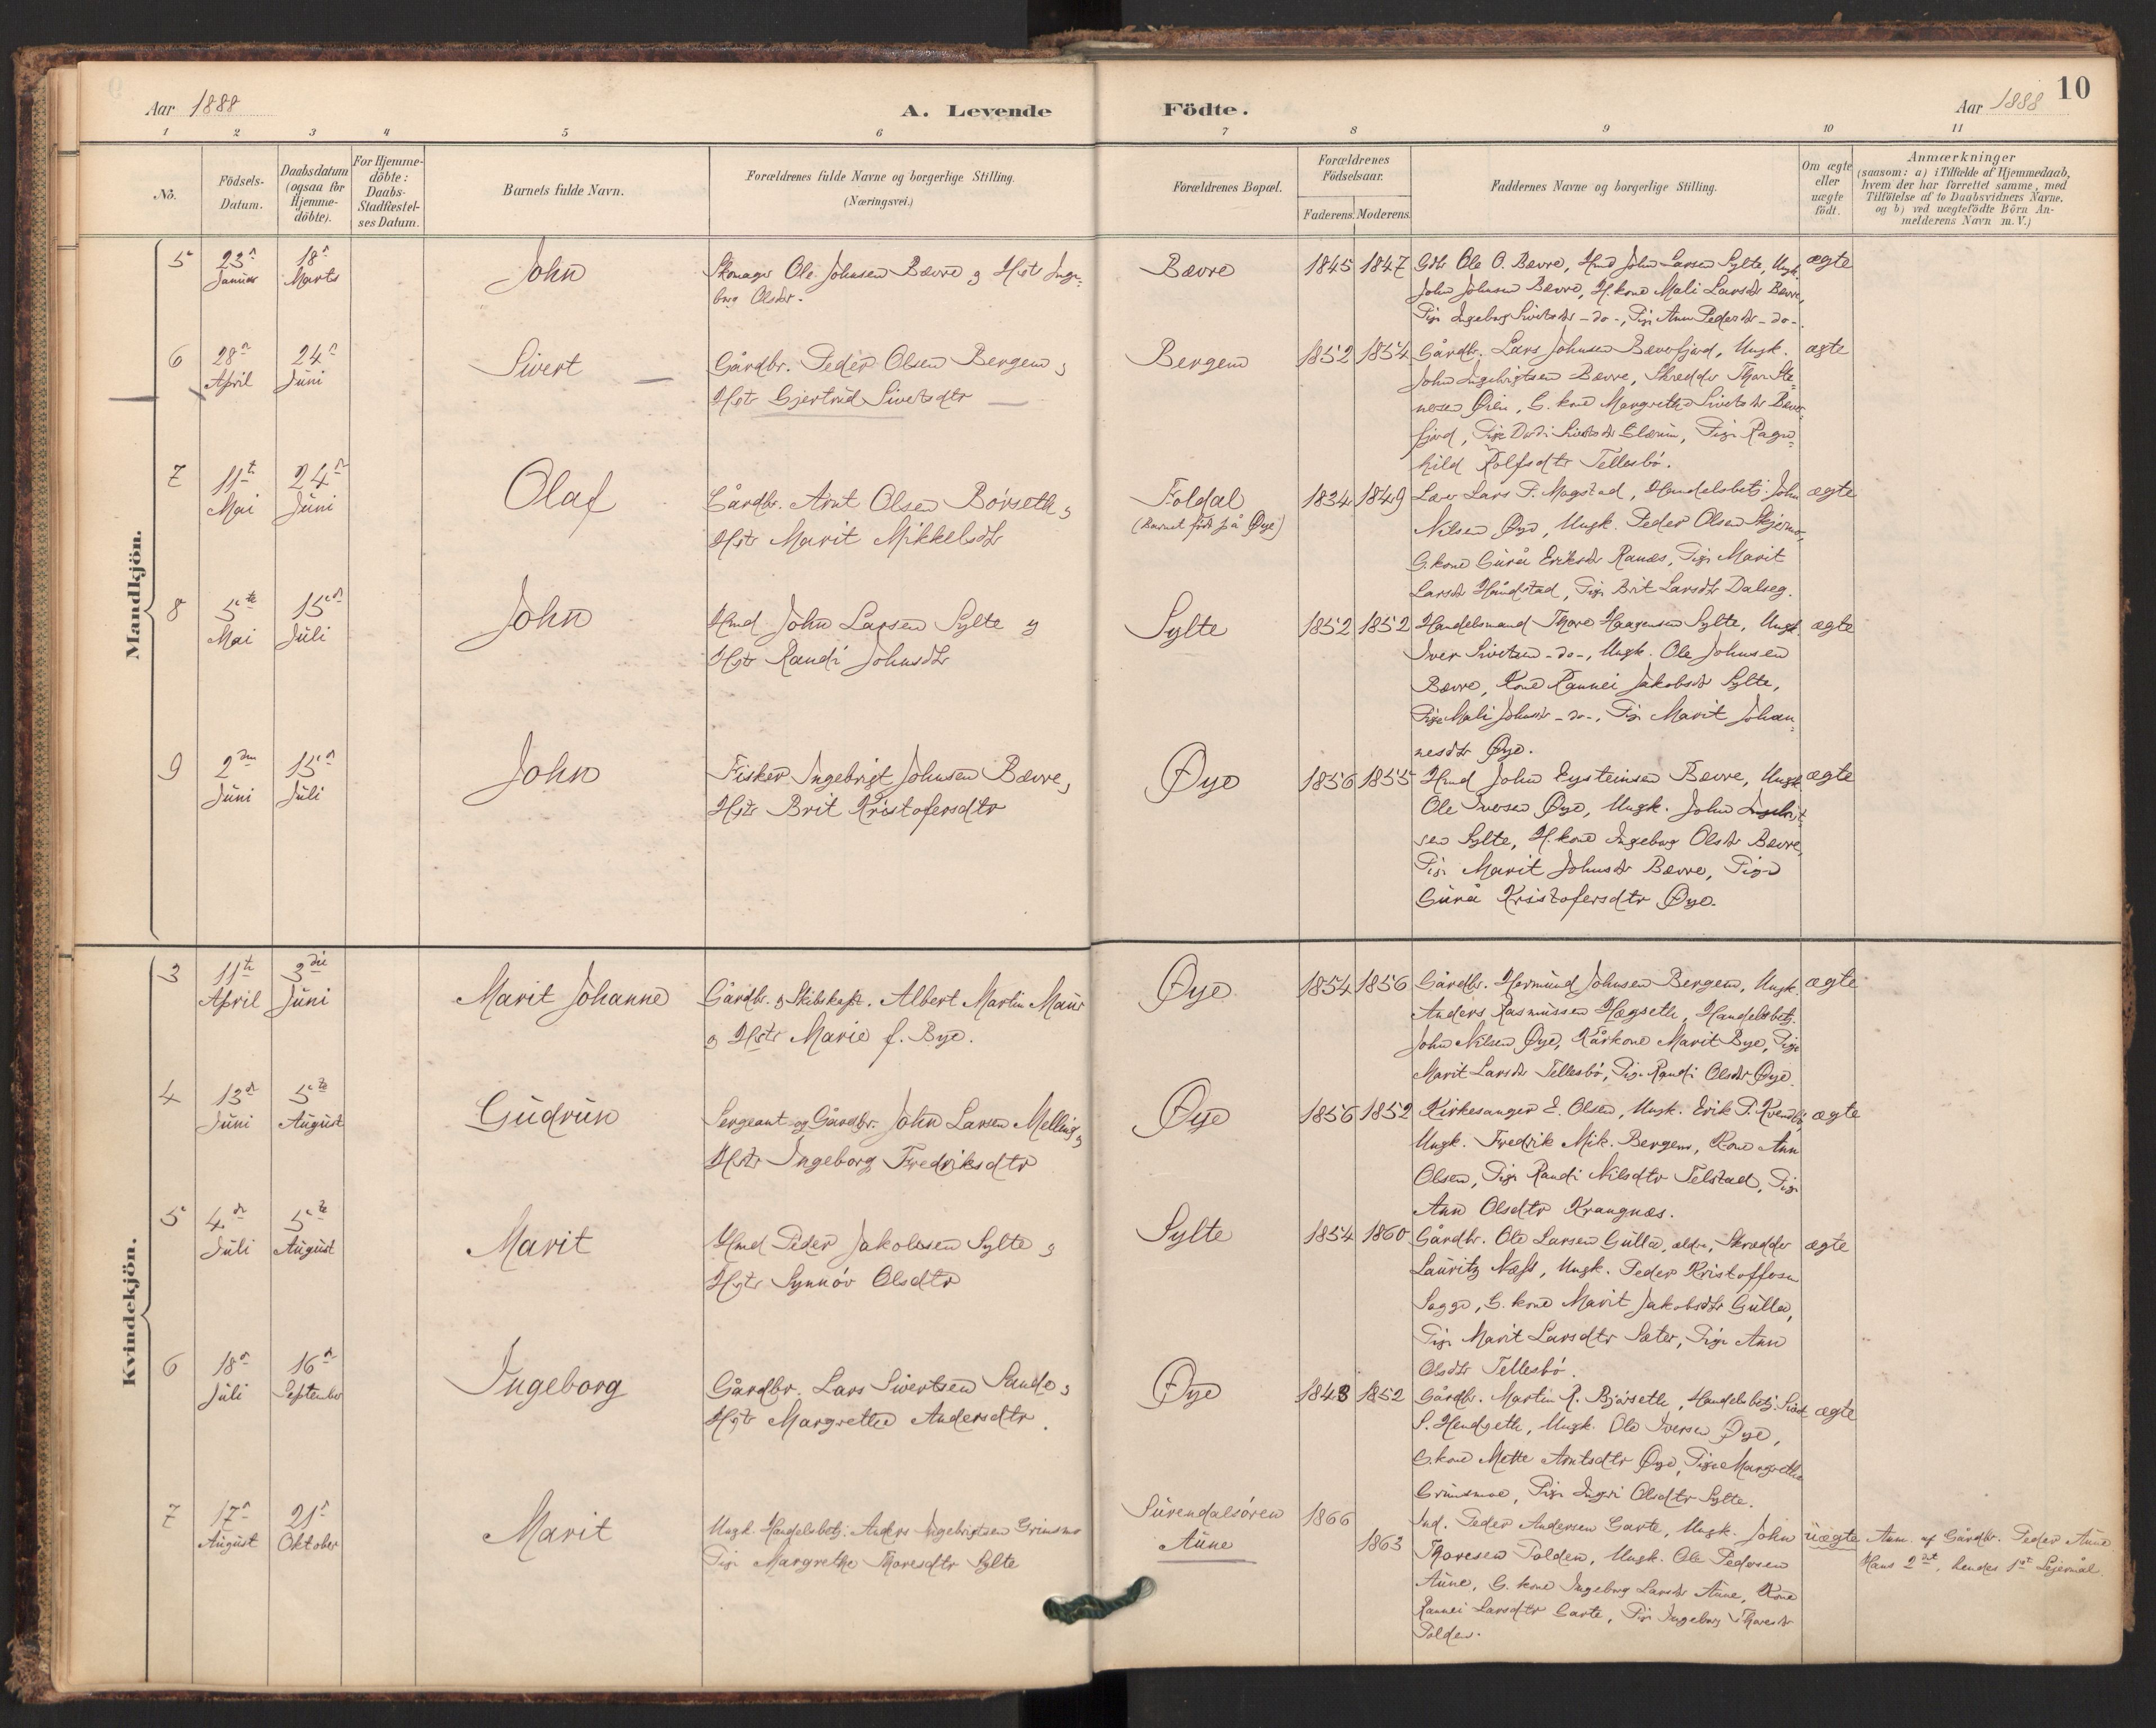 Aar 1888
A. Levende Födte.
Aar 1888
10
1 2 3 4 5 6 7 8 9 10 11
No.
Födsels-
Datum.
Daabsdatum
(ogsaa for
Hjemme-
döbte).
For Hjemme-
döbte:
Daabs-
Stadfæstel-
ses Datum.
Barnets fulde Navn.
Forældrenes fulde Navne og borgerlige Stilling.
(Næringsvei.)
Forældrenes Bopæl.
Forældrenes
Födselsaar.
Faderens. Moderens.
Faddernes Navne og borgerlige Stilling.
Om ægte
eller
uægte
födt.
Anmærkninger
(saasom: a) i Tilfælde af Hjemmedaab,
hvem der har forrettet samme, med
Tilföielse af to Daabsvidners Navne,
og b) ved uægtefödte Börn An-
melderens Navn m. V.)
Mandkjön.
5
23de Januar
18de Marts
John
Skomager Ole Johnsen Bævre og Hst Inge-
borg Olsdtr.
Bævre
1845 1847
Gdbr Ole O. Bævre, Hmd John Larsen Sylte, Ungk.
John Johnsen Bævre, H.kone Mali Larsdtr Bævre,
Pige Ingeborg Sivertsdtr -do-, Pige Ann Pedersdtr -do-.
ægte
6
28de April
24de Juni
Sivert
Gårdbr. Peder Olsen Bergem og
Hstr Gjertrud Sivertsdtr
Bergem
1852 1854
Gårdbr. Lars Johnsen Bæverfjord, Ungk.
John Ingebrigtsen Bævre, Skredder Thor Ste-
nersen Øien, G. kone Margrethe Sivertsdtr Bæver-
fjord, Pige Dordi Sivertsdtr Glærum, Pige Ragn-
hild Rolfsdtr Tellesbö.
ægte
7
11te Mai
24de Juni
Olaf
Gårdbr. Arnt Olsen Börseth og
Hstr Marit Mikkelsdtr
Foldal
(Barnet födt på Øye)
1834 1849
Lærer Lars P. Magstad, Handelsbetj. John
Nilsen Øye, Ungk. Peder Olsen Skjermo,
G.kone Gurå Eriksdtr Ranæs, Pige Marit
Larsdtr Håndstad, Pige Brit Larsdtr Dalseg.
ægte
8
5te Mai
15de Juli
John
Hmd John Larsen Sylte og
Hstr Randi Johnsdtr
Sylte
1852 1852
Handelsmand Thore Haagensen Sylte, Ungk.
Iver Sivertsen -do-, Ungk. Ole Johnsen
Bævre, Kone Rannei Jakobsdtr Sylte,
Pige Mali Johnsdtr -do-, Pige Marit Johan-
nesdtr Øye.
ægte
9
2den Juni
15de Juli
John
Fisker Ingebrigt Johnsen Bævre,
Hstr Brit Kristofersdtr
Øye
1856 1855
Hmd John Eysteinsen Bævre, Ungk.
Ole Iversen Øye, Ungk. John Ingebrigt-
sen Sylte, H.kone Ingeborg Olsdtr Bævre,
Pige Marit Johnsdtr Bævre, Pige
Gurå Kristofersdtr Øye.
ægte
Kvindekjön.
3
11te April
3die Juni
Marit Johanne
Gårdbr. & Skibskapt. Albert Martin Maur
og Hstr Marie f. Bye.
Øye
1854 1856
Gårdbr. Hermund Johnsen Bergem, Ungk.
Anders Rasmussen Hægseth, Handelsbetj.
John Nilsen Øye, Kårkone Marit Bye, Pige
Marit Larsdtr Tellesbö, Pige Randi Olsdtr Øye.
ægte
4
13de Juni
5te August
Gudrun
Sergeant og Gårdbr. John Larsen Melling og
Hstr Ingeborg Fredriksdtr
Øye
1856 1852
Kirkesanger E. Olsen, Ungk. Erik P. Kvendbö,
Ungk. Fredrik Mik. Bergem, Kone Ann
Olsen, Pige Randi Nilsdtr Telstad, Pige
Ann Olsdtr Krangnæs.
ægte
5
4de Juli
5te August
Marit
Hmd Peder Jakobsen Sylte og
Hstr Synnöv Olsdtr
Sylte
1854 1860
Gårdbr. Ole Larsen Gulla, ældre, Skrædder
Lauritz Næss, Ungk. Peder Kristoffersen
Sogge, G. kone Marit Jakobsdtr Gulla,
Pige Marit Larsdtr Sæter, Pige Ann
Olsdtr Tellesbö.
ægte
6
18de Juli
16de September
Ingeborg
Gårdbr. Lars Sivertsen Sande og
Hstr Margrethe Andersdtr.
Øye
1848 1852
Gårdbr. Martin R. Bjørseth, Handelsbetj.
Ungk. Ole Iversen Øye,
G.kone Mette Arntsdtr Øye, Pige Margrethe
Grimsmoe, Pige Ingri Olsdtr Sylte.
ægte
7
17de August
21de Oktober
Marit
Ungk. Handelsbetj. Anders Ingebrigtsen Grimsmo
Pige Margrethe Thoresdtr Sylte
Surendalsören
Aune
1866
1863
Ind. Peder Andersen Garte, Ungk. John
Thoresen Polden, Ungk. Ole Pedersen
Aune, G. kone Ingeborg Larsdtr Aune, Kone
Rannei Larsdtr Garte, Pige Ingeborg Thoresdtr
Polden.
uægte
Anm. af Gårdbr. Peder Aune
Hans 2det, hendes 1st Leiermål.